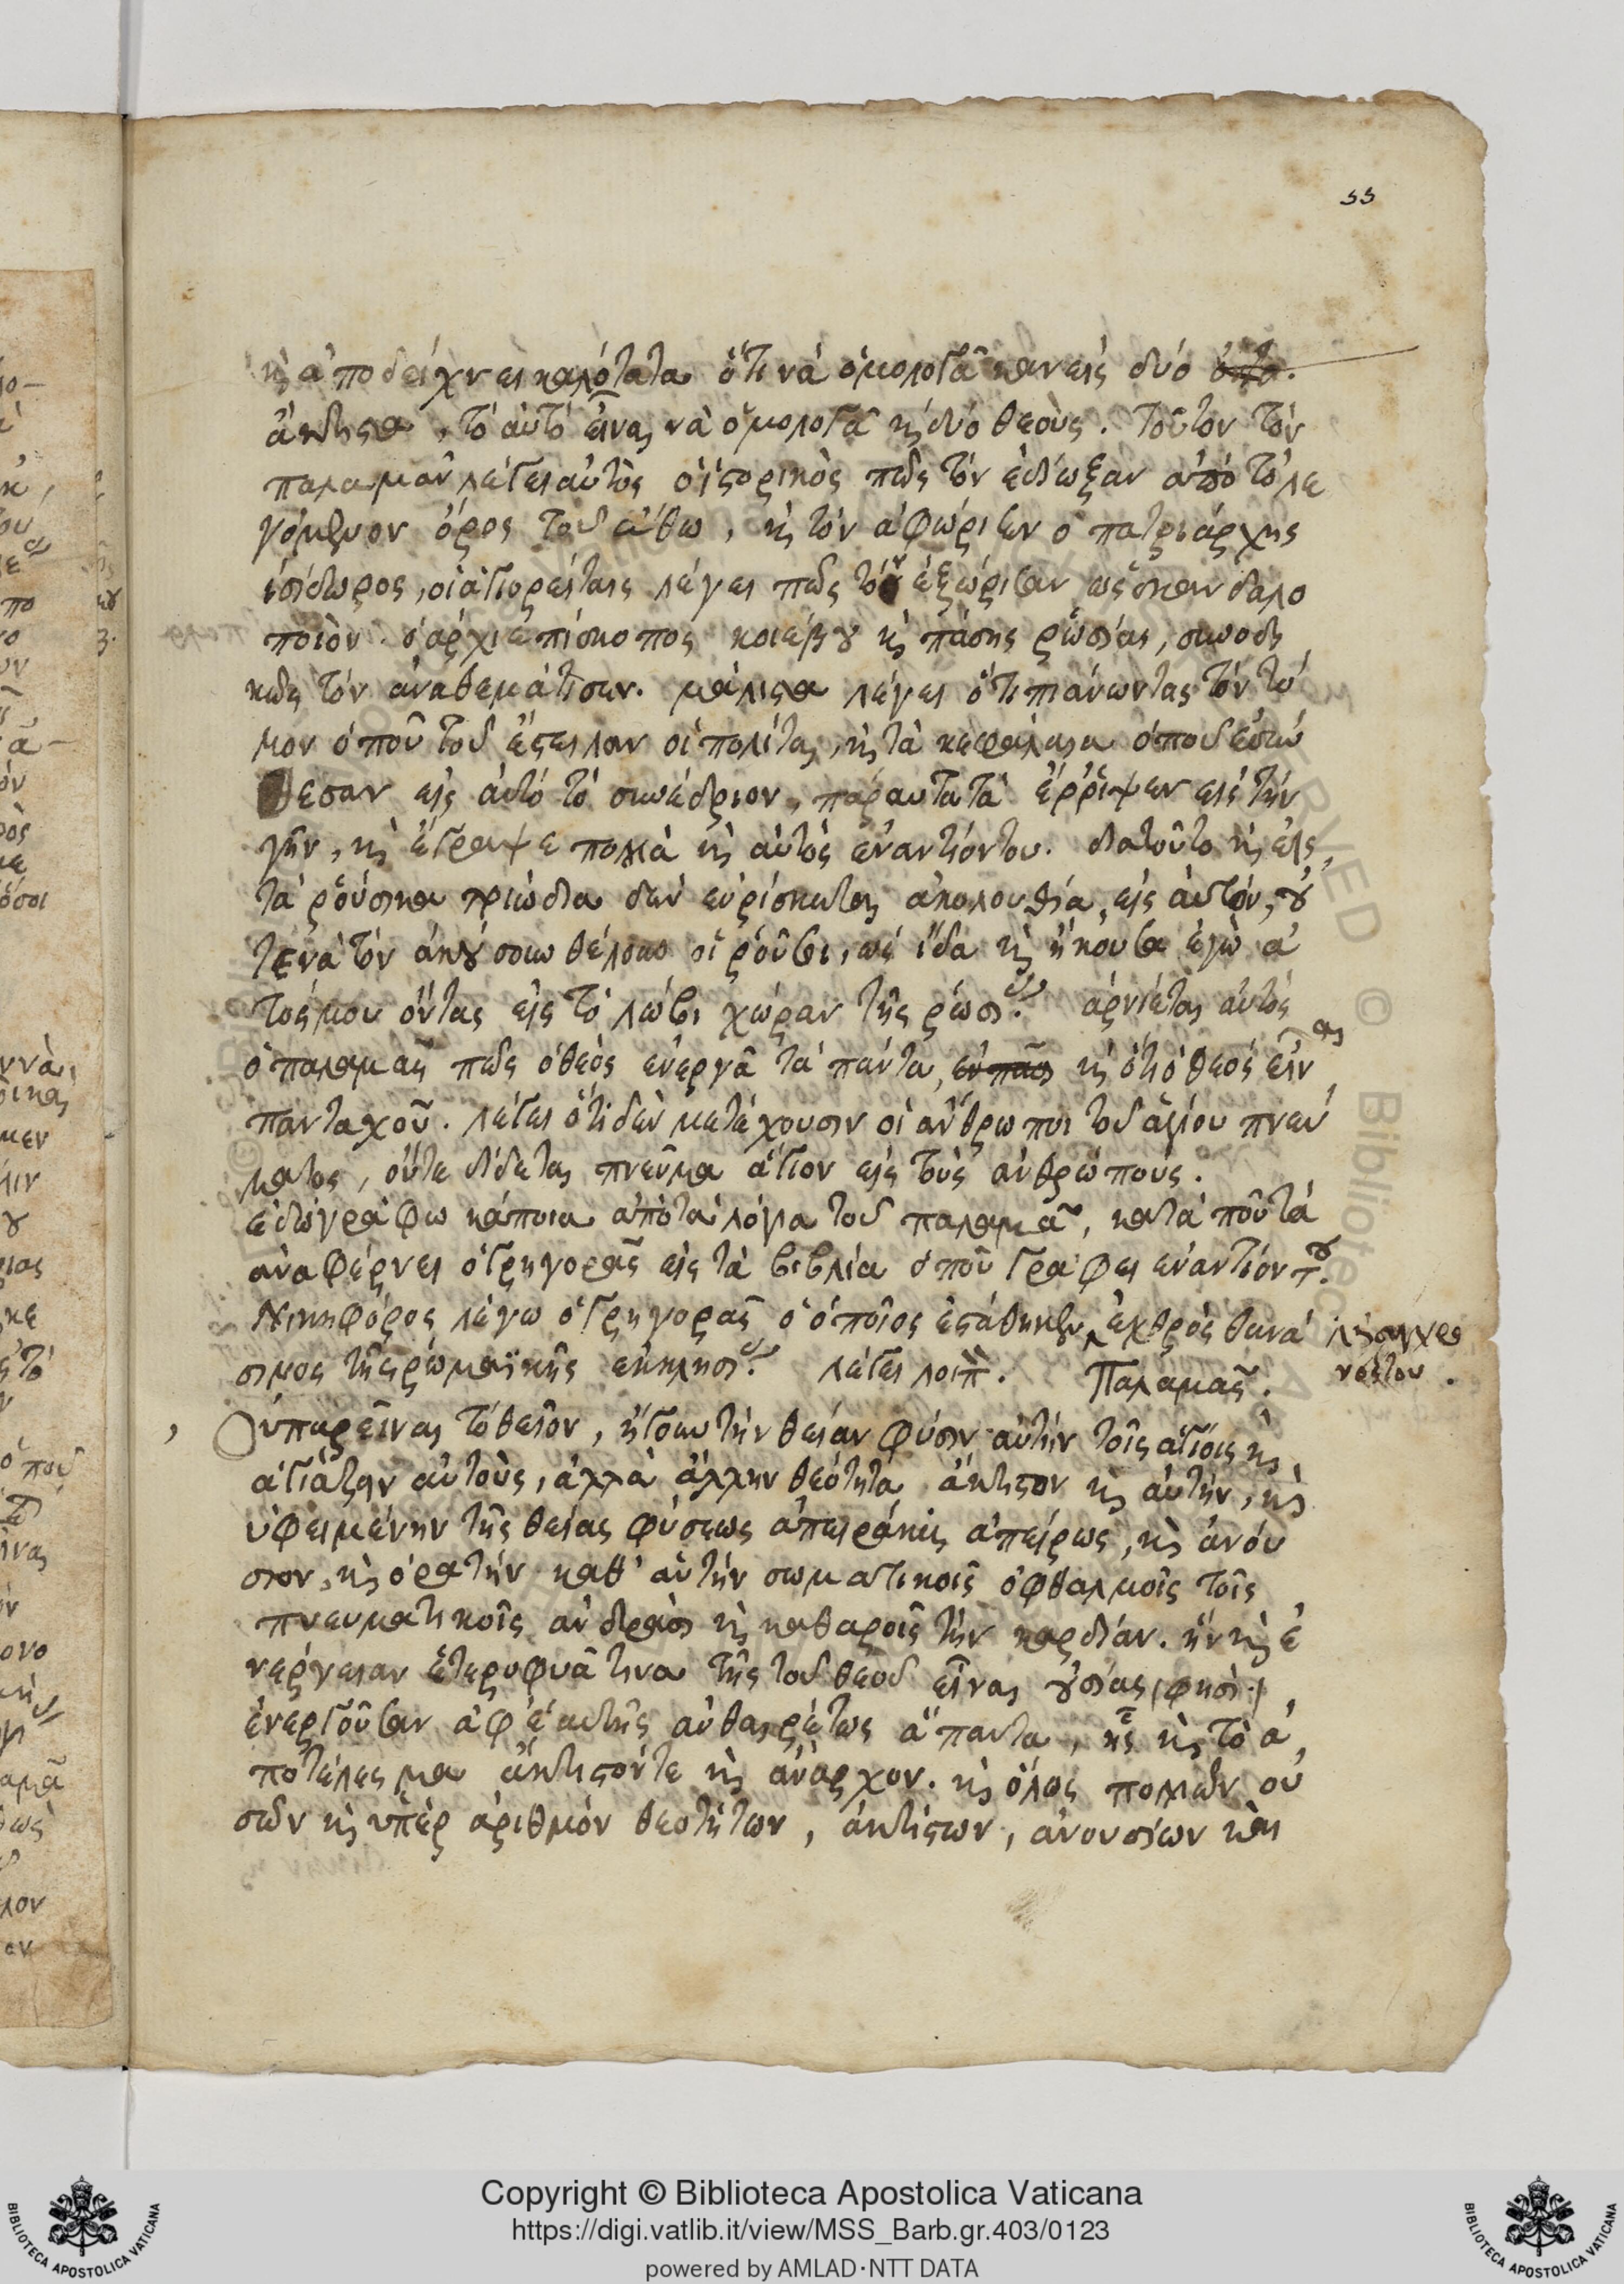 55
κ(αὶ) ἀποδείχνει καλότατα ὅτι νὰ ὁμολογᾶ κανεὶς δύο
ἄκτιστα, τὸ αὐτὸ εἶναι νὰ ὁμολογᾶ κ(αὶ) δύο θεοὺς. τοῦτον τὸν
παλαμᾶν λέγει αὐτὸς ὁ ἱστορικὸς πῶς τὸν ἐδίωξαν ἀπὸ τὸ λε
γόμενον ὄρος τοῦ ἄθω, κ(αὶ) τὸν ἀφώρισεν ὁ πατριάρχης
ἰσίδωρος, οἱ ἁγιορείταις λέγει πῶς τὸν ἐξώρισαν ὡς σκανδαλο
ποιὸν. ὁ ἀρχιεπίσκοπος κοιέβου κ(αὶ) πάσης ῥωσίας, συνοδι
κῶς τὸν ἀναθεμάτισεν. μάλιστα λέγει ὅτι πιάνωντας τὸν τό
μον ὁποῦ τοῦ ἔστειλαν οἱ πολίται, κ(αὶ) τὰ κεφάλαια ὁποῦ ἐσύν
θεσαν εἰς αὐτὸ τὸ συνέδριον, πάραυτα τὰ ἔρριψεν εἰς τὴν
γῆν, κ(αὶ) ἔγραψε πολλὰ κ(αὶ) αὐτὸς ἐναντίον του. διατοῦτο κ(αὶ) εἰς
τὰ ῥούσικα τριώδια δὲν εὑρίσκεται ἀκολουθία εἰς αὐτόν, οὔ
τε νὰ τὸν ἀκούσουν θέλουν οἱ ῥοῦσοι, ὡς ἴδα κ(αὶ) ἤκουσα ἐγὼ ἀ
τός μου ὄντας εἰς τὸ λώβι χώραν τῆς ῥωσίας. ἀρνιέται αὐτὸς
ὁ παλαμᾶς πῶς ὁ θεὸς ἐνεργᾶ τὰ πάντα, κ(αὶ) ὅτι ὁ θεὸς εἶναι
πανταχοῦ. λέγει ὅτι δὲν μετέχουσιν οἱ ἄνθρωποι τοῦ ἁγίου πνεύ
ματος, οὔτε δίδεται πνεῦμα ἅγιον εἰς τοὺς ἀνθρώπους.
ἐδὼ γράφω κάποια ἀπὸ τὰ λόγια τοῦ παλαμᾶ, κατὰ ποῦ τὰ
ἀναφέρνει ὁ γρηγορᾶς εἰς τὰ βιβλία ὁποῦ γράφει ἐναντίον του.
Νικηφόρος λέγω ὁ γρηγορᾶς ὁ ὁποῖος ἐστάθηκεν ἐχθρὸς θανά
σιμος τῆς ῥωμαϊκῆς ἐκκλησίας. λέγει λοιπ(ὸν). Παλαμᾶς.
Οὐ παρεῖναι τὸ θεῖον, ἤγουν τὴν θείαν φύσιν αὐτὴν τοῖς ἁγίοις κ(αὶ)
ἁγιάζειν αὐτοὺς, ἀλλὰ ἄλλην θεότητα ἄκτιστον κ(αὶ) αὐτὴν, κ(αὶ)
ὑφειμένην τῆς θείας φύσεως ἀπειράκις ἀπείρως, κ(αὶ) ἀνού
σιον, κ(αὶ) ὁρατὴν καθ' αὑτὴν σωματικοῖς ὀφθαλμοῖς τοῖς
πνευματικοῖς ἀνδράσι κ(αὶ) καθαροῖς τὴν καρδίαν. ἣν κ(αὶ) ἐ
νέργειαν ἑτεροφυᾶ τινα τῆς τοῦ θεοῦ εἶναι οὐσίας (φησὶ)
ἐνεργοῦσαν ἀφ' ἑαυτῆς αὐθαιρέτως ἅπαντα, ἧς κ(αὶ) τὸ ἀ
ποτέλεσμα ἄκτιστόν τε κ(αὶ) ἄναρχον. κ(αὶ) ὅλως πολλῶν οὐ
σῶν κ(αὶ) ὑπὲρ ἀριθμὸν θεοτήτων, ἀκτίστων, ἀνουσίων καὶ
Copyright © Biblioteca Apostolica Vaticana
https://digi.vatlib.it/view/MSS_Barb.gr.403/0123
powered by AMLAD·NTT DATA
BIBLIOTECA APOSTOLICA VATICANA
BIBLIOTECA APOSTOLICA VATICANA